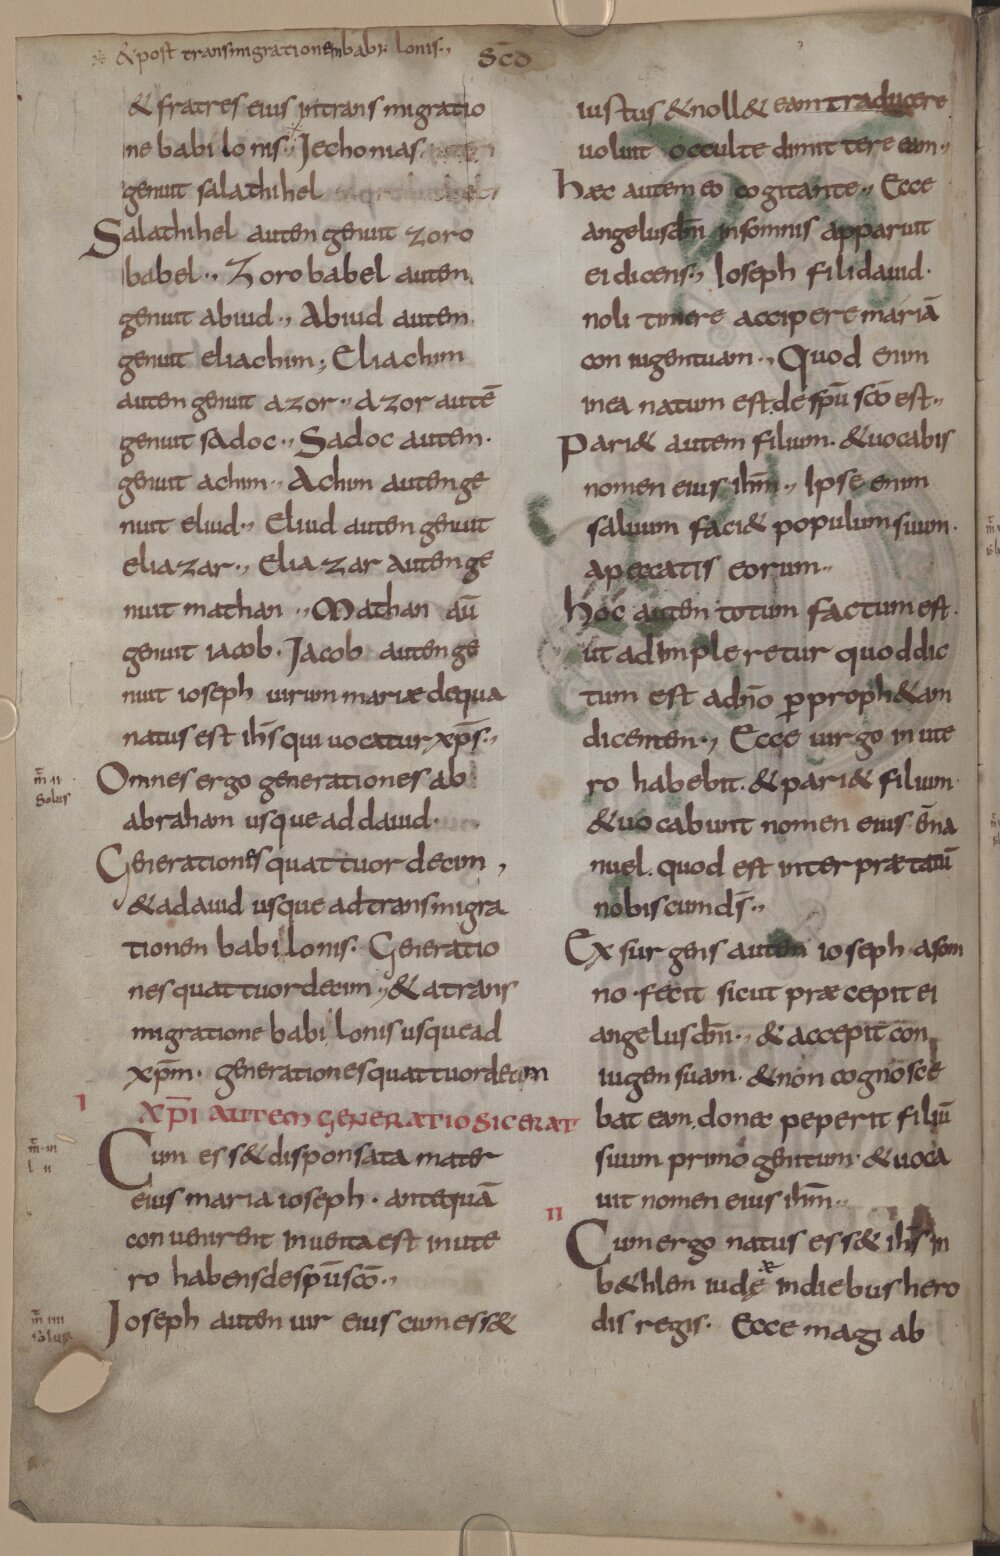 ※ &post transmigrationem babi lonis·,
SC̄D
& fratres eius intrans migratio
ne babi lonis·, Jechonias
genuit salathihel
Salathihel autem genuit zoro
babel·, Zorobabel autem
genuit abiud·, Abiud autem
genuit eliachim; Eliachim
autem genuit azor·, azor autē
genuit sadoc·, Sadoc autem·
genuit achim·, Achim autem ge
nuit eliud·, Eliud autem genuit
eliazar·, Eliazar autem ge
nuit mathan·, Mathan aū
genuit iacob· Jacob autem ge
nuit ioseph uirum mariæ dequa
natus est ih̄s qui uocatur xp̄s·,
m̄ ii
Solus
Omnes ergo generationes ab
abraham usque ad dauid·
Generationes quattuor decim,
&adauid usque ad transmigra
tionem babilonis· Generatio
nes quattuordecim·, & atrans
migratione babilonis usquead
xp̄m· generationes quattuordecim
I
XP̄I AUTEM GENERATIO SIC ERAT
m̄ iii
l ii
Cum ess& disponsata mater
eius maria ioseph· antequā
conuenirent inuenta est inute
ro habens desp̄u sc̄o·,
m̄ iiii
solus
Joseph autem uir eius cum ess&
iustus & noll& eam traducere
uoluit occulte dimittere eam·,
Hæc autem eo cogitante·, Ecce
angelus dn̄i insomnis apparuit
ei dicens·, Ioseph fili dauid·
noli timere accipere mariā
coniugem tuam·, Quod enim
in ea natum est de sp̄u sc̄o est·,
Pari& autem filium· &uocabis
nomen eius ih̄m·, Ipse enim
saluum faci& populum suum·
apeccatis eorum·,
Hoc autem totum factum est·
ut adimpleretur quod dic
tum est adn̄o p̱ proph&am
dicentem·, Ecce uirgo in ute
ro habebit· & pari& filium·
&uocabunt nomen eius em̄a
nuel· quod est inter prætatū
nobiscum d̄s·,
Exsurgens autem ioseph asom
no· fecit sicut præcepit ei
angelus dn̄i·, & accepit con
iugem suam· &non cognosce
bat eam, donec peperit filiū
suum primogenitum· &uoca
uit nomen eius ih̄m·,
II
Cum ergo natus ess& ih̄s in
b&hlem iudeæ indiebus hero
dis regis· Ecce magi ab